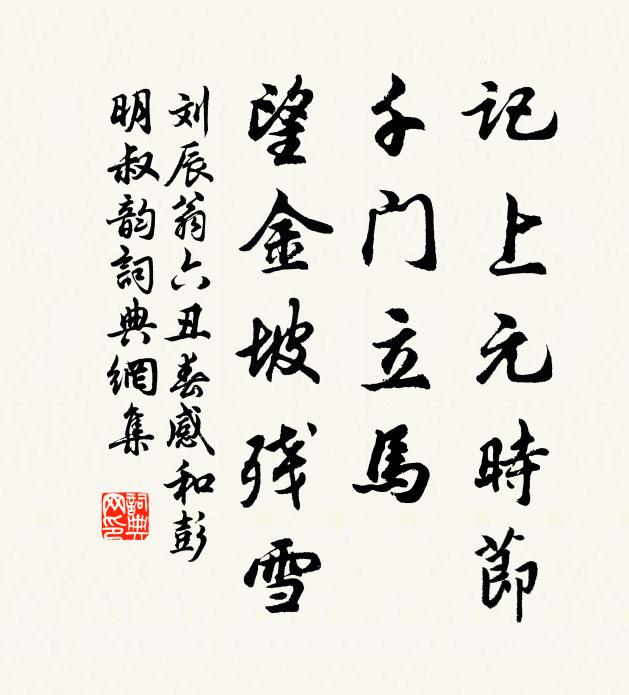 记上元时節
千门立馬
望金坡残雪
刘辰翁六丑春感和彭
明叔韵詞典網集
詞典网印